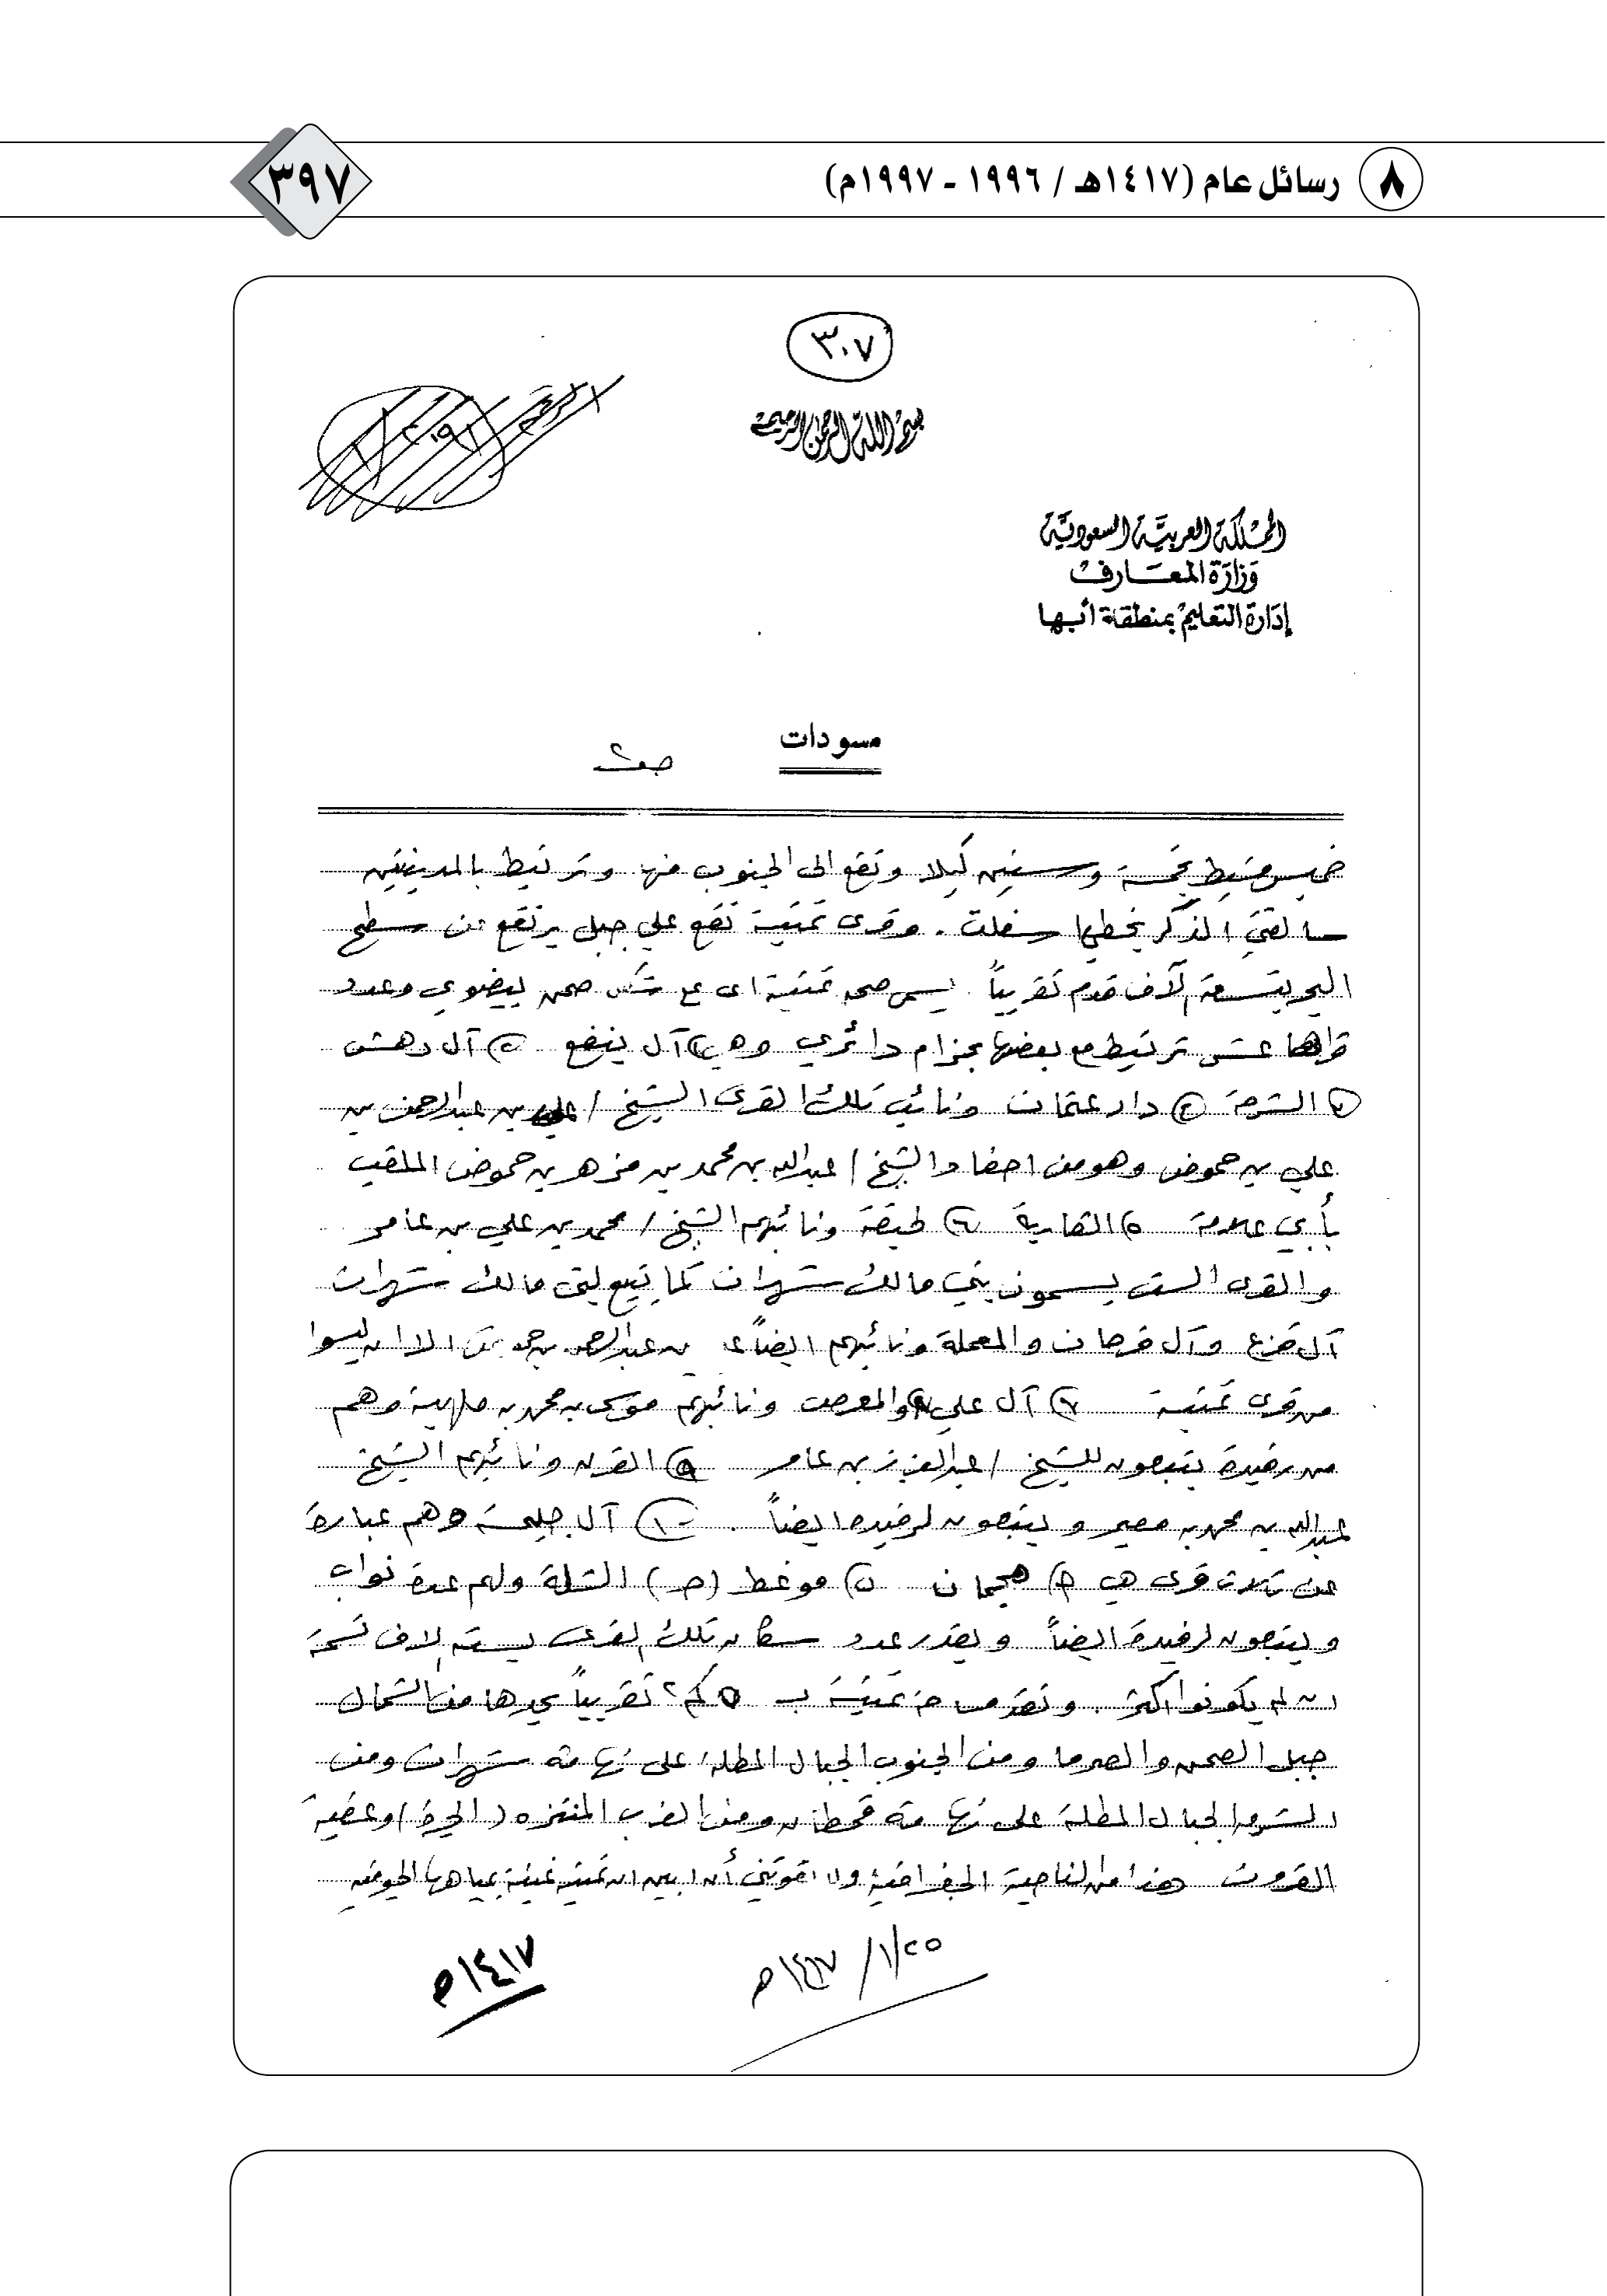 ٨ رسائل عام (١٤١٧هـ / ١٩٩٦ - ١٩٩٧م)
٣٩٧
٣٠٧
بسم الله الرحمن الرحيم
المملكة العربية السعودية
وزارة المعارف
إدارة التعليم بمنطقة أبها
مسودات
خميس مشيط بخمسة وستين كيلا وتقع الى الجنوب منها وترتبط بالمدينتين
سالفتي الذكر بخطي سفلت . وقرى تمنية تقع على جبل يرتفع عن سطح
البحر بتسعة آلاف قدم تقريباً يسمى صحن تمنية اى على شكل صحن بيضوي وعدد
قراها عشر ترتبط مع بعضها بحزام دائري وهي ١) آل ينفع ٢) آل دهش
٣) الشرمة ٤) دار عثمان ونائب تلك القرى الشيخ / علي بن عبدالرحمن بن
علي بن حموض وهو من احفاد الشيخ / عبدالله بن محمد بن مزهر بن حموض الملقب
بأبي علامة ٥) القارية ٦) طبقة ونائبهم الشيخ / محمد بن علي بن عامر
والقرى الست يسمون بني مالك شهران كما يتبع لبني مالك شهران
آل قزع وآل فرحان والمعملة ونائبهم ايضاً بن عبدالرحمن بن الا ان ليسوا
من قرى تمنية ٧) آل علي ٨) والمعرص ونائبهم موسى بن محمد بن وهم
من رفيدة يتبعون للشيخ / عبدالعزيز بن عامر ٩) القرن ونائبهم الشيخ
عبدالله بن محمد بن وينتمون لرفيدة ايضاً . ١٠) آل جليحة وهم عبارة
عن ثلاث قرى هي هجمان موغط الشلة ولهم عدة نواب
ويتبعون لرفيدة ايضاً ويقدر عدد سكان تلك القرى بستة الاف نسمة
ان لم يكونوا اكثر . وتقدر مساحة تمنية بـ ٥ كم٢ تقريباً يحدها من الشمال
جبل الصحن والصرما ومن الجنوب الجبال المطلة على تهامة شهران ومن
الشرق الجبال المطلة على تهامة قحطان ومن الغرب المنتزه ( الجرة ) وعضبة
القرون هذا من الناحية الجغرافية ولا تفوتني أن ابين ان تمنية غنية بمياهها الجوفية
٢٥/١/١٤١٧ه
١٤١٧ه